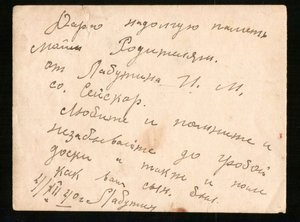 Дарю на долгую память
моим Родителям.
от Лабутина И. М.
со. Сейскар.
Любите и помните и
незабывайте до гробой
доски и также и
как ваш сын. был.
21/XII 40 г Лабутин